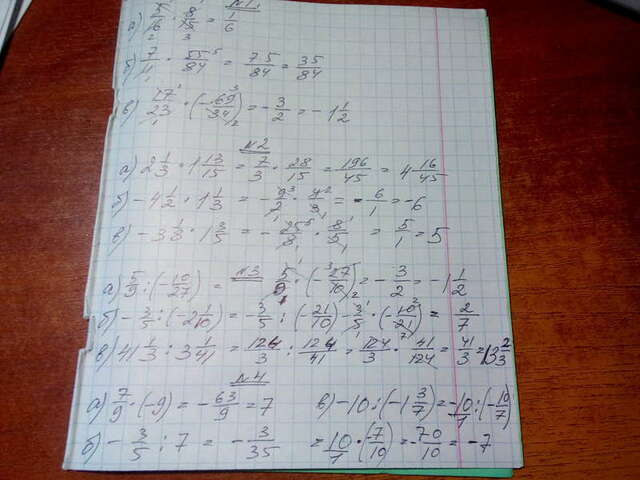 N1.
а) 5/16 : 8/15 = 1/6
б) 7/11 · 55/84 = 7·5/84 = 35/84
в) 17/23 · (-69/34) = -3/2 = -1 1/2
N2
а) 2 1/3 · 1 13/15 = 7/3 · 28/15 = 196/45 = 4 16/45
б) -4 1/2 · 1 1/3 = -9/2 · 4/3 = -6/1 = -6
в) -3 1/8 · 1 3/5 = -25/8 · 8/5 = 5/1 = 5
N3
а) 5/9 : (-10/27) = 5/9 · (-27/10) = -3/2 = -1 1/2
б) -3/5 : (-2 1/10) = -3/5 : (-21/10) -3/5 · (-10/21) = 2/7
в) 41 1/3 : 3 1/41 = 124/3 : 124/41 = 124/3 · 41/124 = 41/3 = 13 2/3
N4
а) 7/9 · (-9) = -63/9 = 7
в) -10 : (-1 3/7) = -10/1 : (-10/7)
б) -3/5 : 7 = -3/35
= 10/1 · (-7/10) = -70/10 = -7